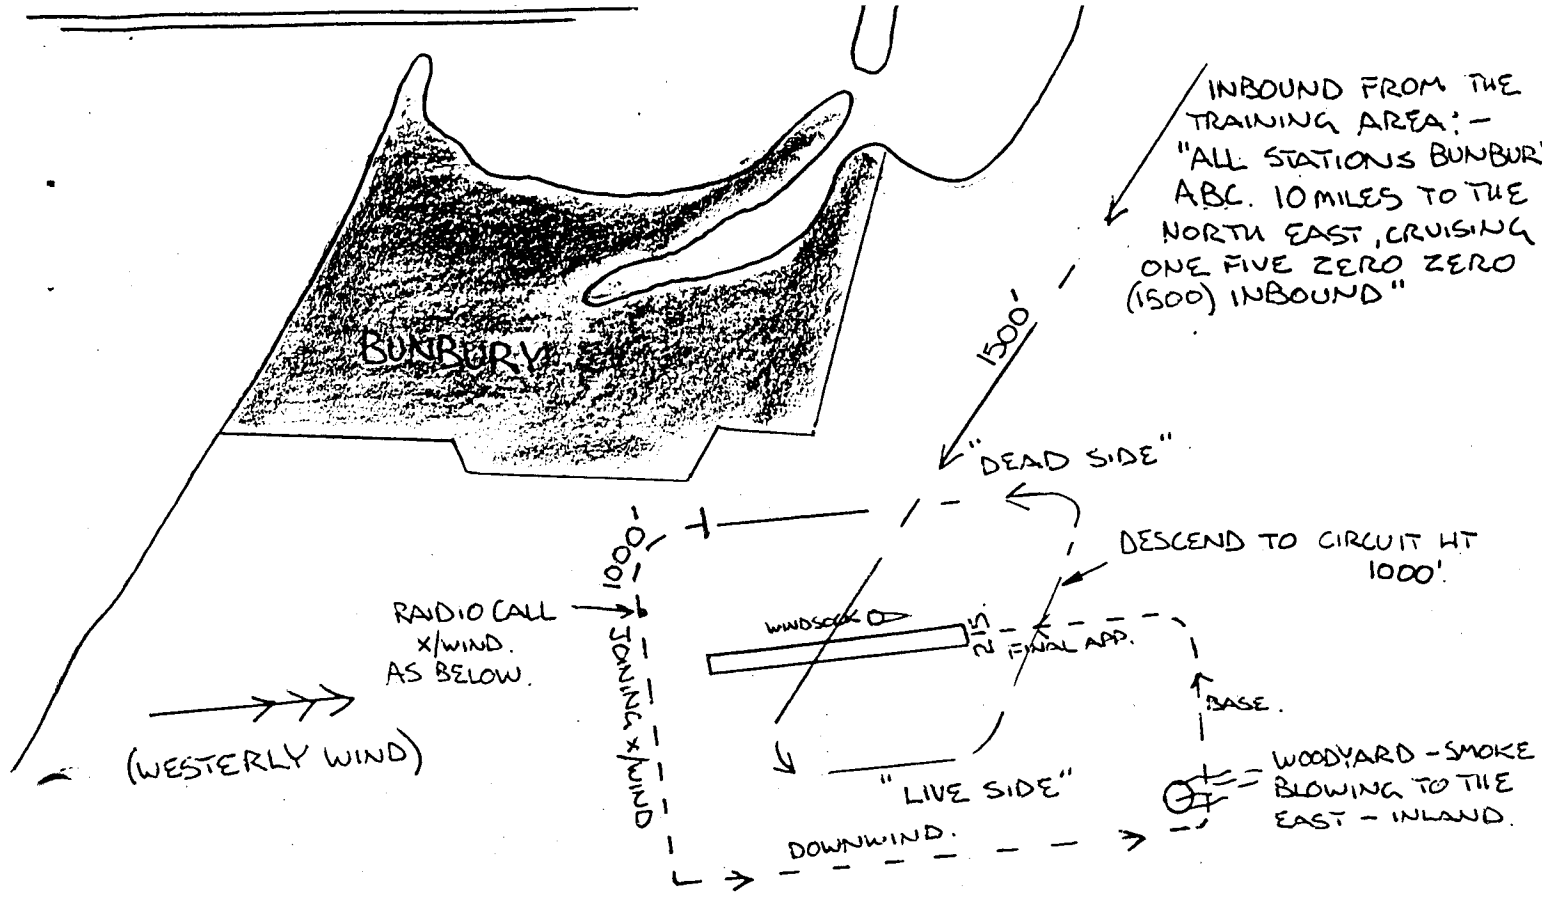 INBOUND FROM THE
TRAINING AREA:-
"ALL STATIONS BUNBUR
ABC. 10 MILES TO THE
NORTH EAST, CRUISING
ONE FIVE ZERO ZERO
(1500) INBOUND"
BUNBURY
1500'
"DEAD SIDE"
DESCEND TO CIRCUIT HT
1000'.
1000'
RAIDIO CALL
X/WIND.
AS BELOW.
JOINING X/WIND
WINDSOCK
25.
FINAL APP.
BASE.
(WESTERLY WIND)
"LIVE SIDE"
DOWNWIND.
WOODYARD - SMOKE
BLOWING TO THE
EAST - INLAND.